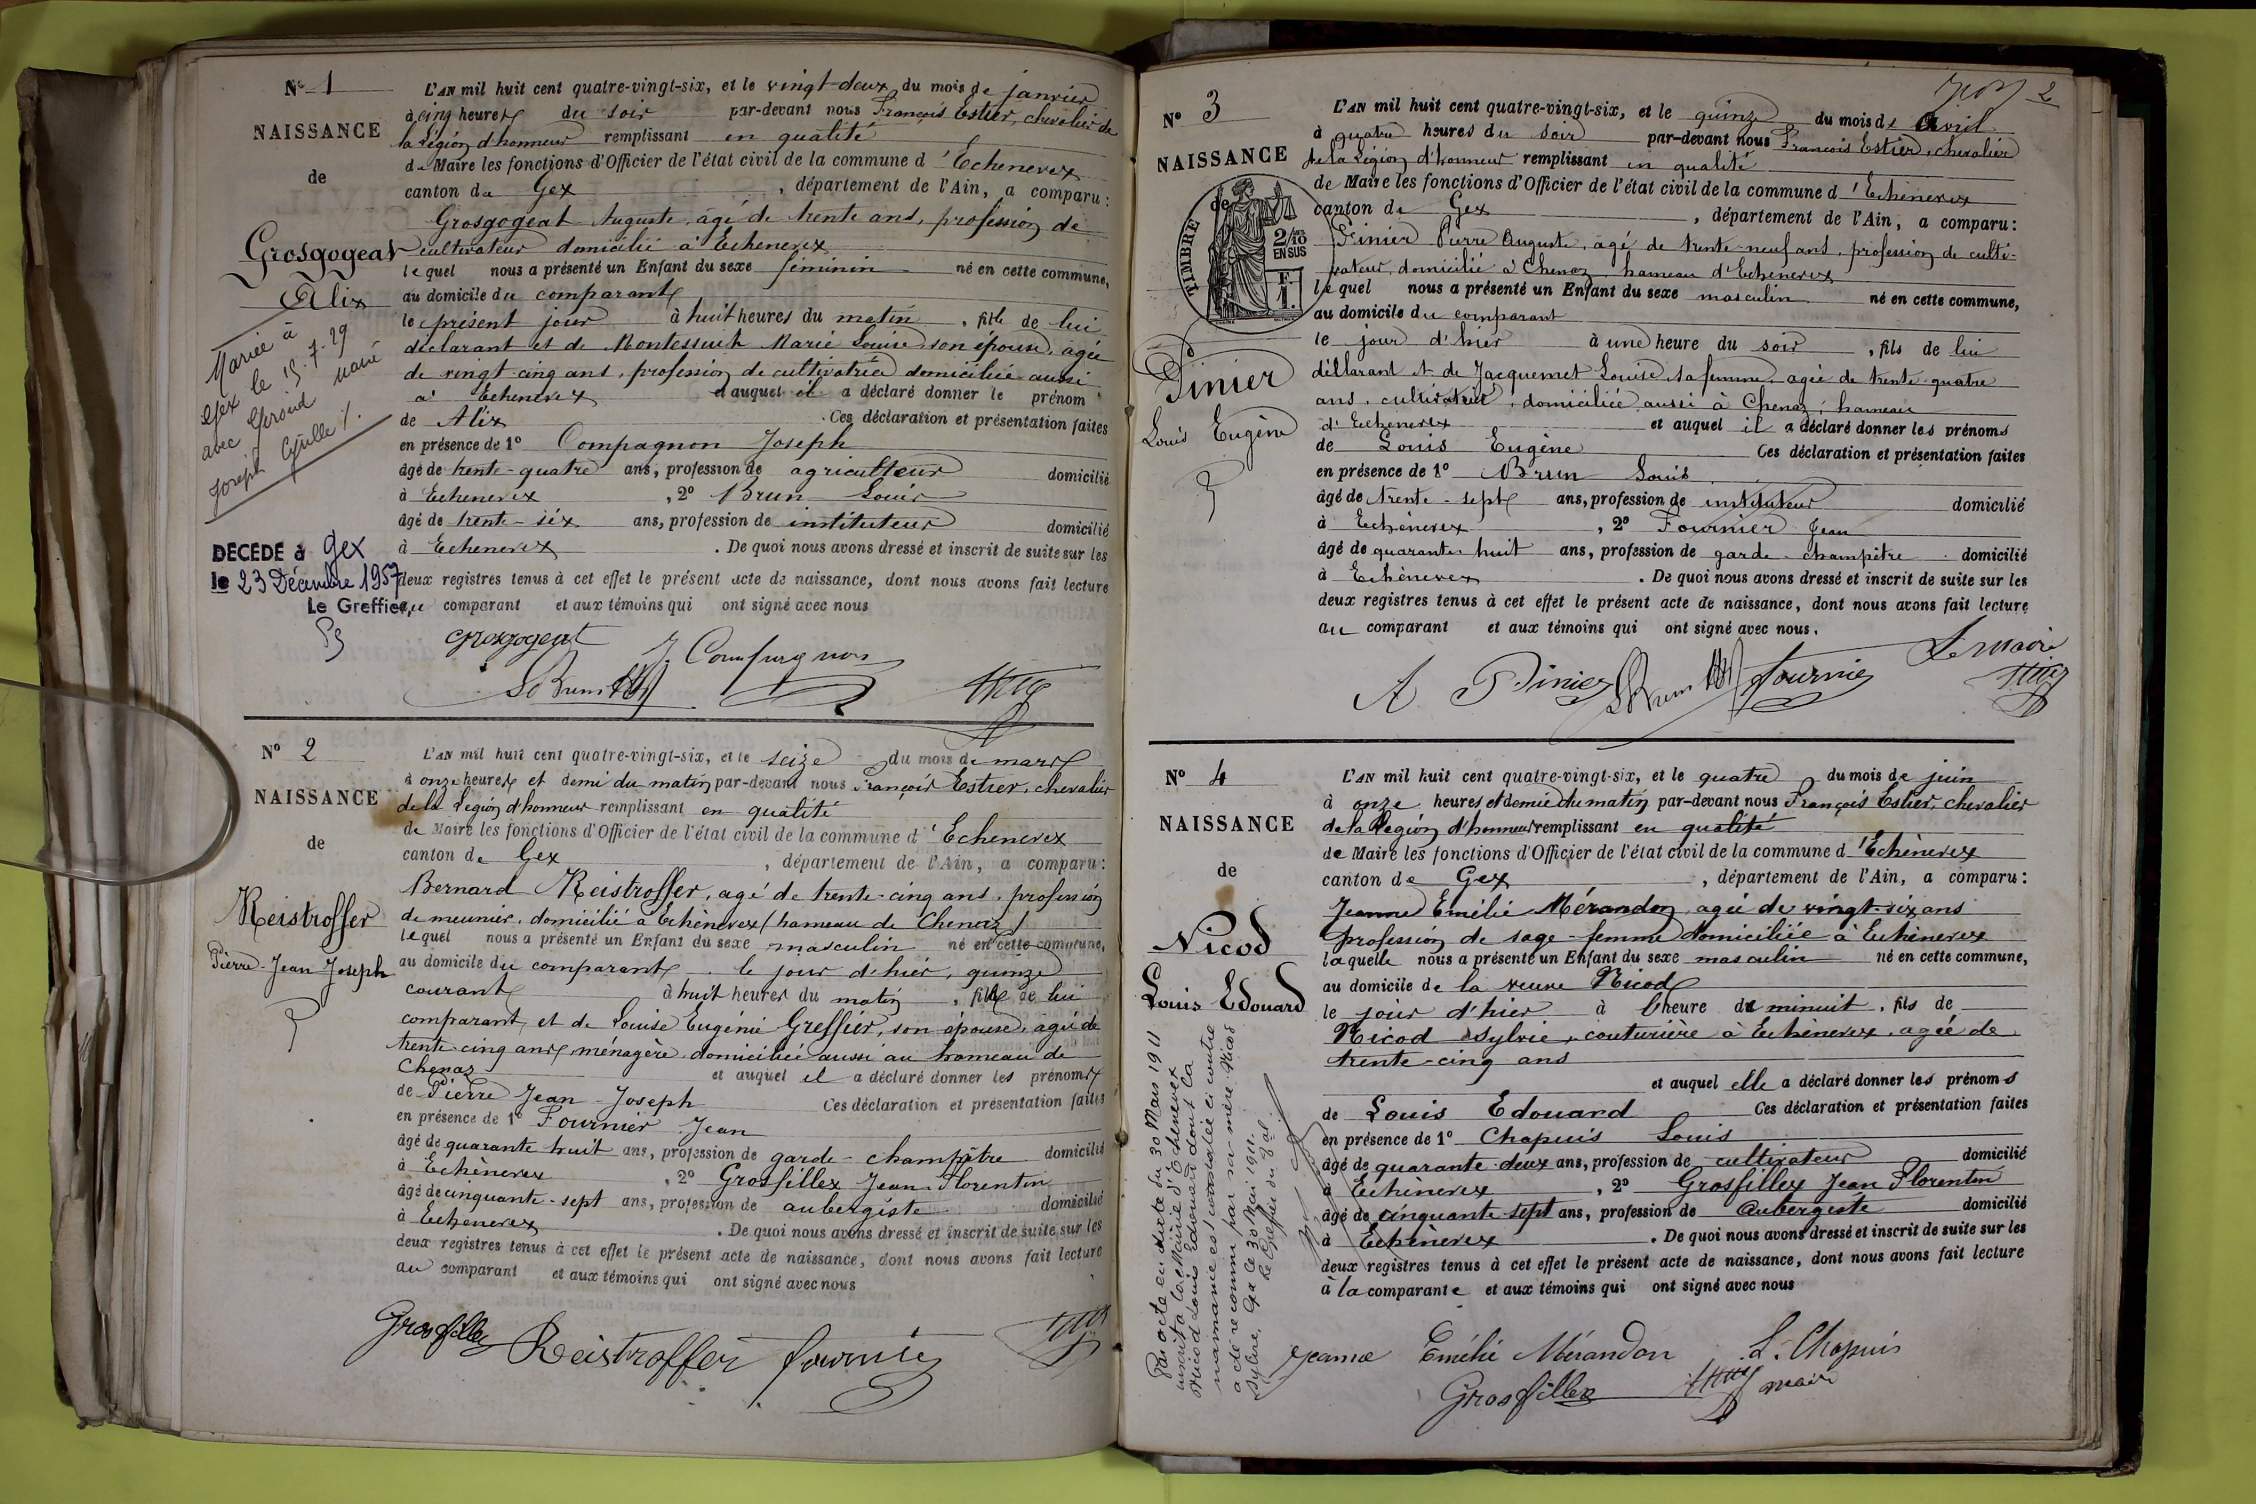 N° 1
NAISSANCE
de
Grosgogeat
Alix
Mariée à
Gex le 15.7.29
avec Géroud Marie
Joseph Cyrille
DECEDE à Gex
le 23 Décembre 1957
Le Greffier,
L'AN mil huit cent quatre-vingt-six, et le vingt-deux du mois de janvier
à cinq heures du soir par-devant nous François Estier, chevalier de
la Légion d'honneur remplissant en qualité
de Maire les fonctions d'Officier de l'état civil de la commune d'Echenevex
canton de Gex, département de l'Ain, a comparu:
Grosgogeat Auguste, âgé de trente ans, profession de
cultivateur domicilié à Echenevex
lequel nous a présenté un Enfant du sexe féminin né en cette commune,
au domicile du comparant
le présent jour à huit heures du matin, fille de lui
déclarant et de Montessuit Marie Louise son épouse, agée
de vingt-cinq ans, profession de cultivatrice domiciliée aussi
à Echenevex et auquel il a déclaré donner le prénom
de Alix. Ces déclaration et présentation faites
en présence de 1° Compagnon Joseph
âgé de trente-quatre ans, profession de agriculteur domicilié
à Echenevex, 2° Brun Louis
âgé de trente-six ans, profession de instituteur domicilié
à Echenevex. De quoi nous avons dressé et inscrit de suite sur les
deux registres tenus à cet effet le présent acte de naissance, dont nous avons fait lecture
au comparant et aux témoins qui ont signé avec nous
Grosgogeat J. Compagnon
L Brun
N° 2
NAISSANCE
de
Reistroffer
Pierre-Jean Joseph
L'AN mil huit cent quatre-vingt-six, et le seize du mois de mars
à onze heures et demi du matin par-devant nous François Estier, chevalier
de la Légion d'honneur remplissant en qualité
de Maire les fonctions d'Officier de l'état civil de la commune d'Echenevex
canton de Gex, département de l'Ain, a comparu:
Bernard Reistroffer, agé de trente-cinq ans, profession
de meunier, domicilié à Echènevex (hameau de Chenaz)
lequel nous a présenté un Enfant du sexe masculin né en cette commune,
au domicile du comparant, le jour d'hier, quinze
courant à huit heures du matin, fils de lui
comparant, et de Louise Eugénie Greffier, son épouse, agée de
trente-cinq ans, ménagère domiciliée aussi au hameau de
Chenaz et auquel il a déclaré donner les prénoms
de Pierre Jean-Joseph Ces déclaration et présentation faites
en présence de 1° Fournier Jean
âgé de quarante huit ans, profession de garde-champêtre domicilié
à Echènevex, 2° Grosfillex Jean-Florentin
âgé de cinquante-sept ans, profession de aubergiste domicilié
à Echenevex. De quoi nous avons dressé et inscrit de suite sur les
deux registres tenus à cet effet le présent acte de naissance, dont nous avons fait lecture
au comparant et aux témoins qui ont signé avec nous
Grosfillex Reistroffer fournier
2
N° 3
NAISSANCE
de
TIMBRE
2/10
EN SUS
F.
1.
Pinier
Louis Eugène
L'AN mil huit cent quatre-vingt-six, et le quinze du mois de Avril
à quatre heures du soir par-devant nous François Estier, chevalier
de la Légion d'honneur remplissant en qualité
de Maire les fonctions d'Officier de l'état civil de la commune d'Echènevex
canton de Gex, département de l'Ain, a comparu:
Pinier Pierre Auguste, agé de trente-neuf ans, profession de culti-
vateur, domicilié à Chenaz, hameau d'Echenevex
lequel nous a présenté un Enfant du sexe masculin né en cette commune,
au domicile du comparant
le jour d'hier à une heure du soir, fils de lui
déclarant et de Jacquemet Louise, sa femme, agée de trente-quatre
ans, cultivatrice, domiciliée aussi à Chenaz, hameau
d'Echenevex et auquel il a déclaré donner les prénoms
de Louis Eugène Ces déclaration et présentation faites
en présence de 1° Brun Louis
âgé de trente-sept ans, profession de instituteur domicilié
à Echènevex, 2° Fournier Jean
âgé de quarante-huit ans, profession de garde-champêtre. domicilié
à Echènevex. De quoi nous avons dressé et inscrit de suite sur les
deux registres tenus à cet effet le présent acte de naissance, dont nous avons fait lecture
au comparant et aux témoins qui ont signé avec nous.
A Pinier L Brun fournier Le maire
N° 4
NAISSANCE
de
Nicod
Louis Edouard
Par acte en date du 30 Mars 1911
inscrit à la Mairie d'Echenevex
Nicod Louis Edouard dont la
naissance est constatée ci contre
a été reconnu par sa mère Nicod
Sylvie. Gex le 30 Mai 1911.
Le Greffier du Tal
L'AN mil huit cent quatre-vingt-six, et le quatre du mois de juin
à onze heures et demie du matin par-devant nous François Estier, chevalier
de la Légion d'honneur remplissant en qualité
de Maire les fonctions d'Officier de l'état civil de la commune d'Echènevex
canton de Gex, département de l'Ain, a comparu:
Jeanne Emélie Mérandon agée de vingt-six ans
profession de sage-femme domiciliée à Echènevex
laquelle nous a présenté un Enfant du sexe masculin né en cette commune,
au domicile de la veuve Nicod
le jour d'hier à l'heure de minuit, fils de
Nicod Sylvie, couturière à Echènevex, agée de
trente-cinq ans
et auquel elle a déclaré donner les prénoms
de Louis Edouard Ces déclaration et présentation faites
en présence de 1° Chapuis Louis
âgé de quarante-deux ans, profession de cultivateur domicilié
à Echènevex, 2° Grosfillex Jean Florentin
âgé de cinquante sept ans, profession de Aubergiste domicilié
à Echènevex. De quoi nous avons dressé et inscrit de suite sur les
deux registres tenus à cet effet le présent acte de naissance, dont nous avons fait lecture
à la comparante et aux témoins qui ont signé avec nous
Jeanne Emélie Mérandon L. Chapuis
Grosfillex maire